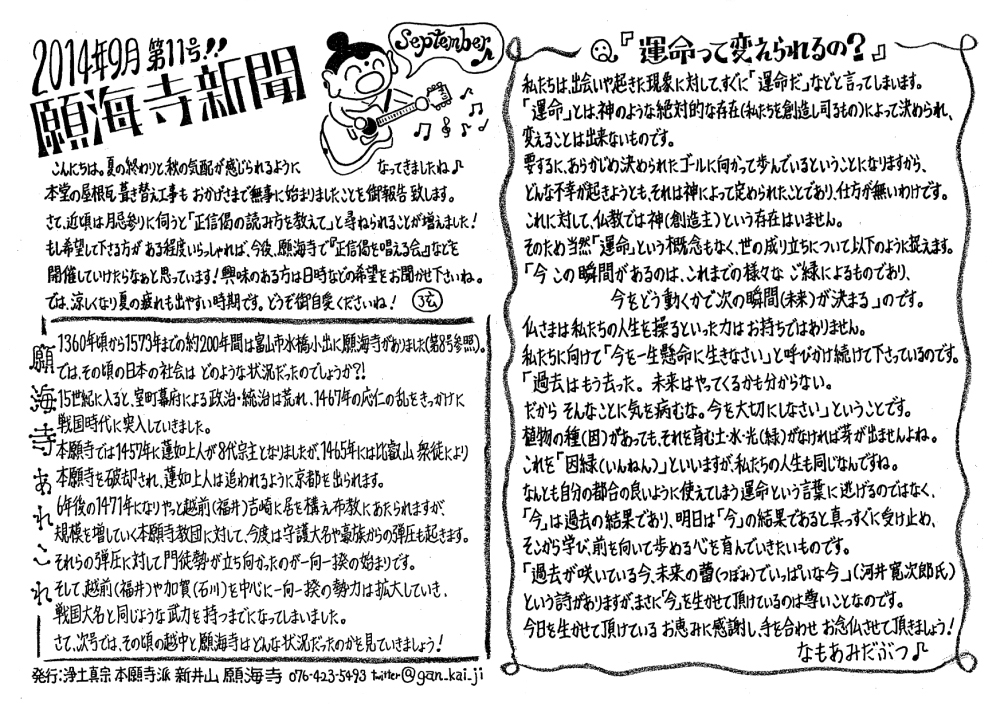 2014年9月 第11号!!
願海寺新聞
September♪
こんにちは。夏の終わりと秋の気配が感じられるように なってきましたね♪
本堂の屋根瓦葺き替え工事も おかげさまで無事に始まりましたことを御報告致します。
さて、近頃は月忌参りに伺うと「正信偈の読み方を教えて」と尋ねられることが増えました!
もし希望して下さる方がある程度いらっしゃれば、今後、願海寺で『正信偈を唱える会』などを
開催していけたらなぁと思っています!興味のある方は日時などの希望をお聞かせ下さいね。
では、涼しくなり夏の疲れも出やすい時期です。どうぞ御自愛くださいね!
願海寺あれこれ
1360年頃から1573年までの約200年間は富山市水橋小出に願海寺がありました(第8号参照)。
では、その頃の日本の社会は どのような状況だったのでしょうか?!
15世紀に入ると、室町幕府による政治・統治は荒れ、1467年の応仁の乱をきっかけに
戦国時代に突入していきました。
本願寺では1457年に蓮如上人が8代宗主となりましたが、1465年には比叡山衆徒により
本願寺を破却され、蓮如上人は追われるように京都を出られます。
6年後の1471年になりやっと越前(福井)吉崎に居を構え布教にあたられますが、
規模を増していく本願寺教団に対して、今度は守護大名や豪族からの弾圧も起きます。
それらの弾圧に対して門徒勢が立ち向かったのが一向一揆の始まりです。
そして、越前(福井)や加賀(石川)を中心に一向一揆の勢力は拡大していき、
戦国大名と同じような武力を持つまでになってしまいました。
さて、次号では、その頃の越中と願海寺はどんな状況だったのかを見ていきましょう!
発行:浄土真宗 本願寺派 新井山 願海寺 076-423-5493 twitter@gan_kai_ji
Q.『運命って変えられるの?』
私たちは、出会いや起きた現象に対して、すぐに「運命だ」などと言ってしまいます。
「運命」とは、神のような絶対的な存在(私たちを創造し司るもの)によって決められ、
変えることは出来ないものです。
要するに、あらかじめ決められたゴールに向かって歩んでいるということになりますから、
どんな不幸が起きようとも、それは神によって定められたことであり、仕方が無いわけです。
これに対して、仏教では神(創造主)という存在はいません。
そのため当然「運命」という概念もなく、世の成り立ちについて以下のように捉えます。
「今この瞬間があるのは、これまでの様々な ご縁によるものであり、
今をどう動くかで次の瞬間(未来)が決まる」のです。
仏さまは私たちの人生を操るといった力はお持ちではありません。
私たちに向けて「今を一生懸命に生きなさい」と呼びかけ続けて下さっているのです。
「過去はもう去った。未来はやってくるかも分からない。
だから そんなことに気を病むな。今を大切にしなさい」ということです。
植物の種(因)があっても、それを育む土・水・光(縁)がなければ芽が出ませんよね。
これを「因縁(いんねん)」といいますが、私たちの人生も同じなんですね。
なんとも自分の都合の良いように使えてしまう運命という言葉に逃げるのではなく、
「今」は過去の結果であり、明日は「今」の結果であると真っすぐに受け止め、
そこから学び、前を向いて歩める心を育んでいきたいものです。
「過去が咲いている今、未来の蕾(つぼみ)でいっぱいな今」(河井寛次郎氏)
という詩がありますが、まさに「今」を生かせて頂けているのは尊いことなのです。
今日を生かせて頂けている お恵みに感謝し、手を合わせ お念仏させて頂きましょう!
なもあみだぶつ♪